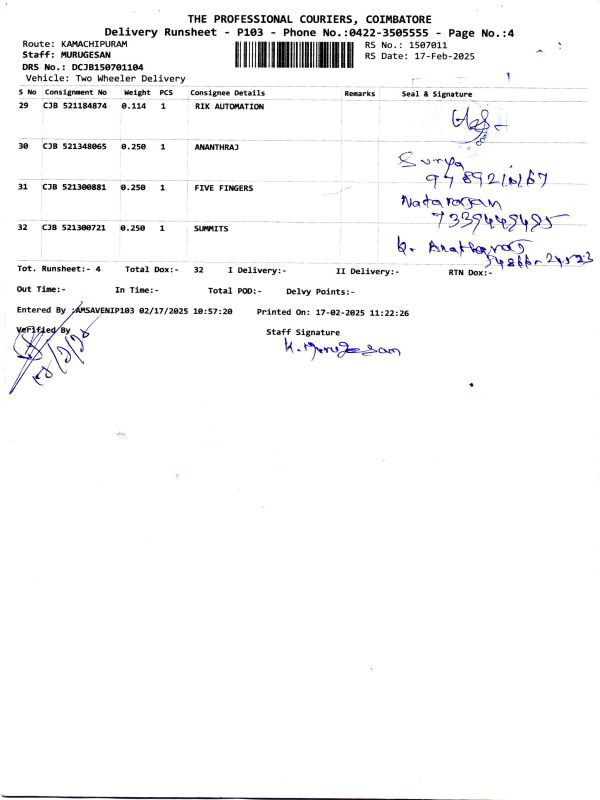 THE PROFESSIONAL COURIERS, COIMBATORE
Delivery Runsheet - P103 - Phone No.:0422-3505555 - Page No.:4
Route: KAMACHIPURAM RS No.: 1507011
Staff: MURUGESAN RS Date: 17-Feb-2025
DRS No.: DCJB150701104
Vehicle: Two Wheeler Delivery
S No Consignment No Weight PCS Consignee Details Remarks Seal & Signature
29 CJB 521184874 0.114 1 RIK AUTOMATION
30 CJB 521348065 0.250 1 ANANTHRAJ
Surya
31 CJB 521300881 0.250 1 FIVE FINGERS
Natarajan
7339449495
32 CJB 521300721 0.250 1 SUMMITS
Tot. Runsheet:- 4 Total Dox:- 32 I Delivery:- II Delivery:- RTN Dox:-
Out Time:- In Time:- Total POD:- Delvy Points:-
Entered By :AMSAVENIP103 02/17/2025 10:57:20 Printed On: 17-02-2025 11:22:26
Verified By Staff Signature
K. Murugesan